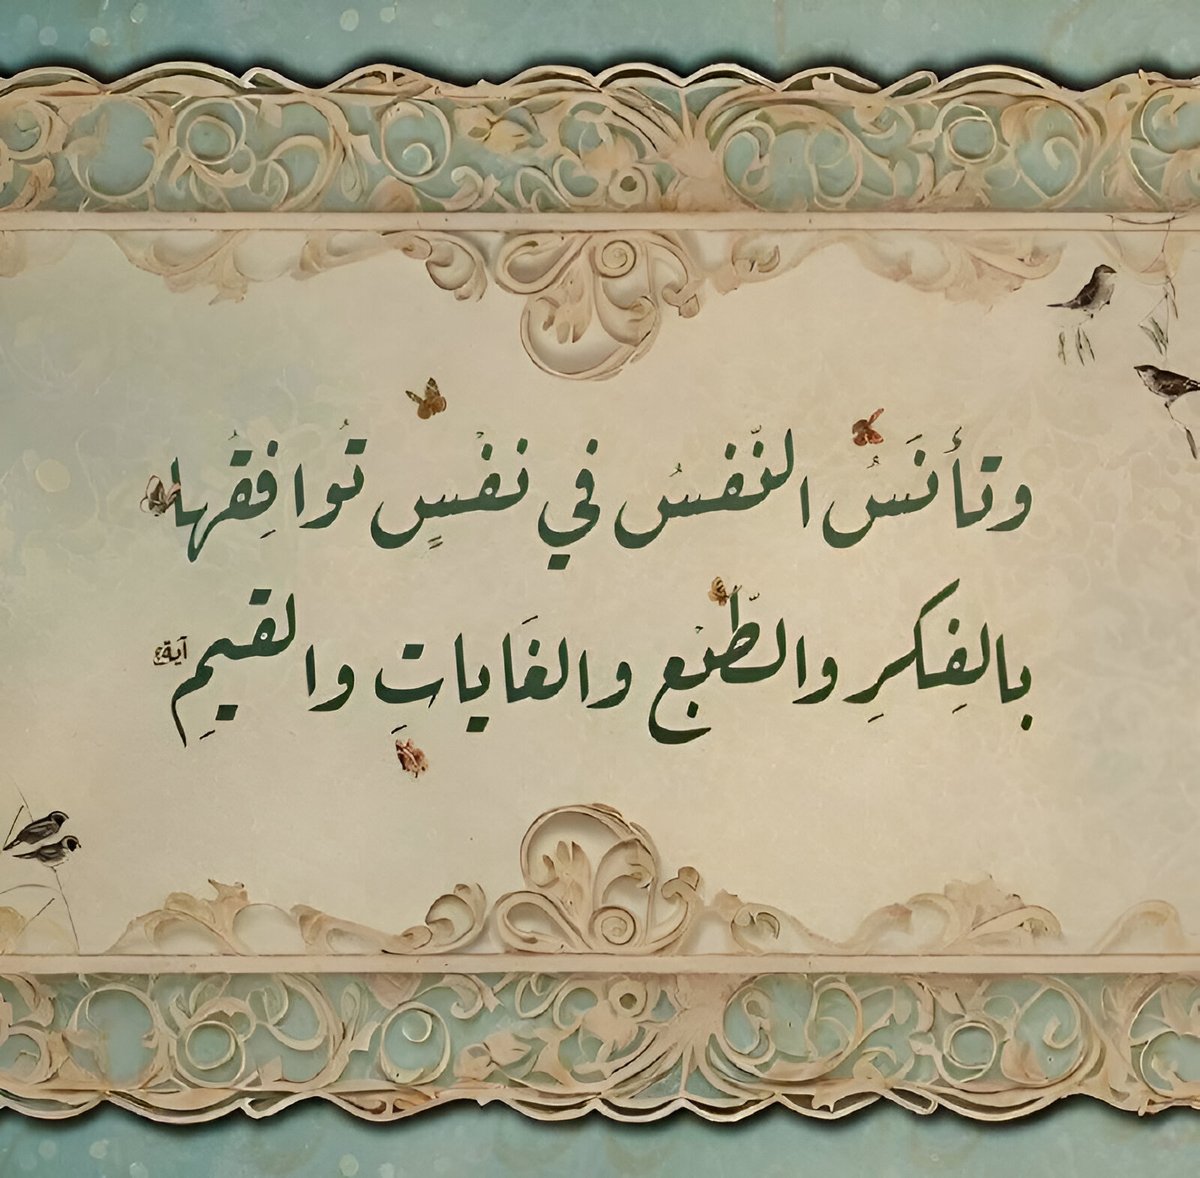 وتأنَسُ النّفسُ في نفْسٍ تُوافِقُها
بالفِكرِ والطّبْعِ والغَاياتِ والقيمِ
آية